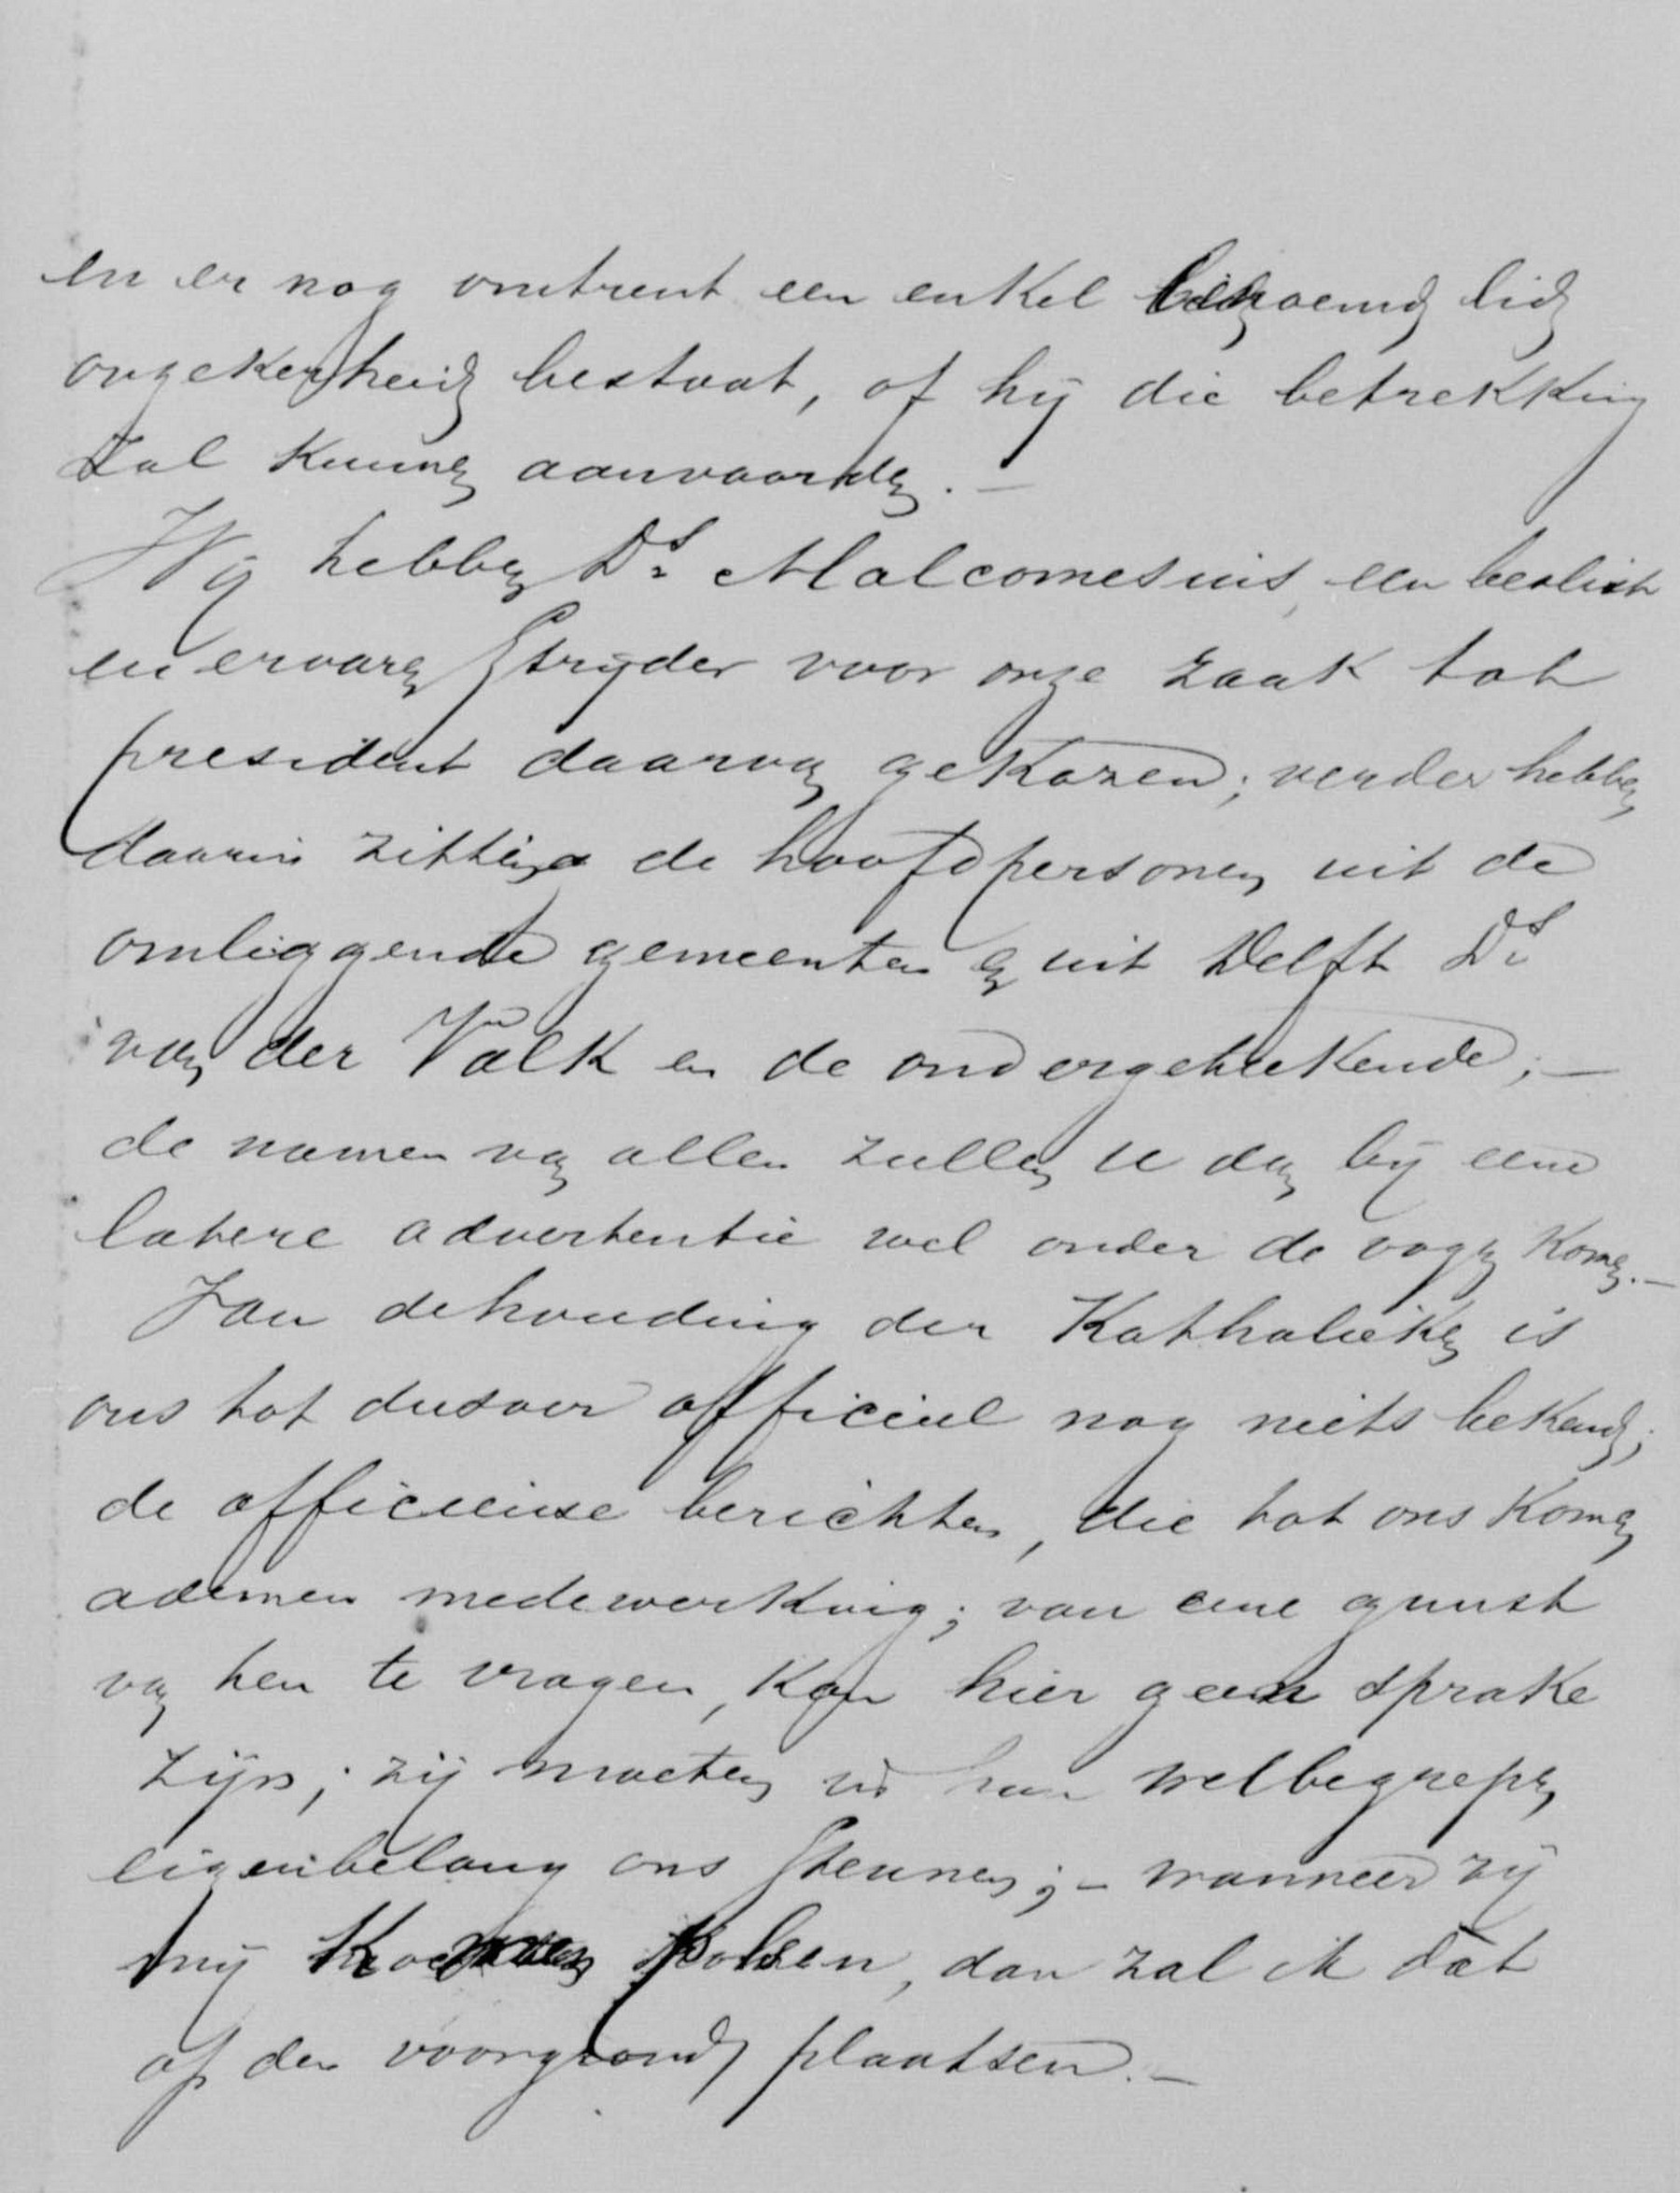 en er nog omtrent een enkel benoemd lid
onzekerheid bestaat, of hij die betrekking
zal kunnen aanvaarden. –
Wij hebben Ds. Malcomesius, een beslist
en ervaren Strijder voor onze zaak tot
president daarvan gekozen; verder hebben
daarin zitting de hoofdpersonen uit de
omliggende gemeenten en uit Delft Ds.
van der Valk en de ondergeteekende; –
de namen van allen zullen u dan bij eene
latere advertentie wel onder de oogen komen. –
Van de houding der Katholieken is
ons tot dusver officieel nog niets bekend;
de officieuse berichten, die tot ons komen
ademen medewerking; van eene gunst
van hen te vragen, kan hier geen sprake
zijn; zij moeten in hun welbegrepen
eigenbelang ons Steunen; – wanneer zij
mij komen polsen, dan zal ik dat
op den voorgrond plaatsen. –